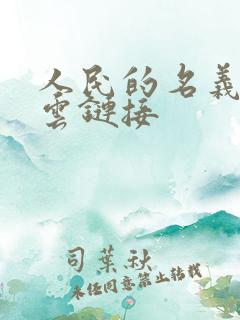 人民的名義
雲鏈接
司葉秋
未经同意禁止转载